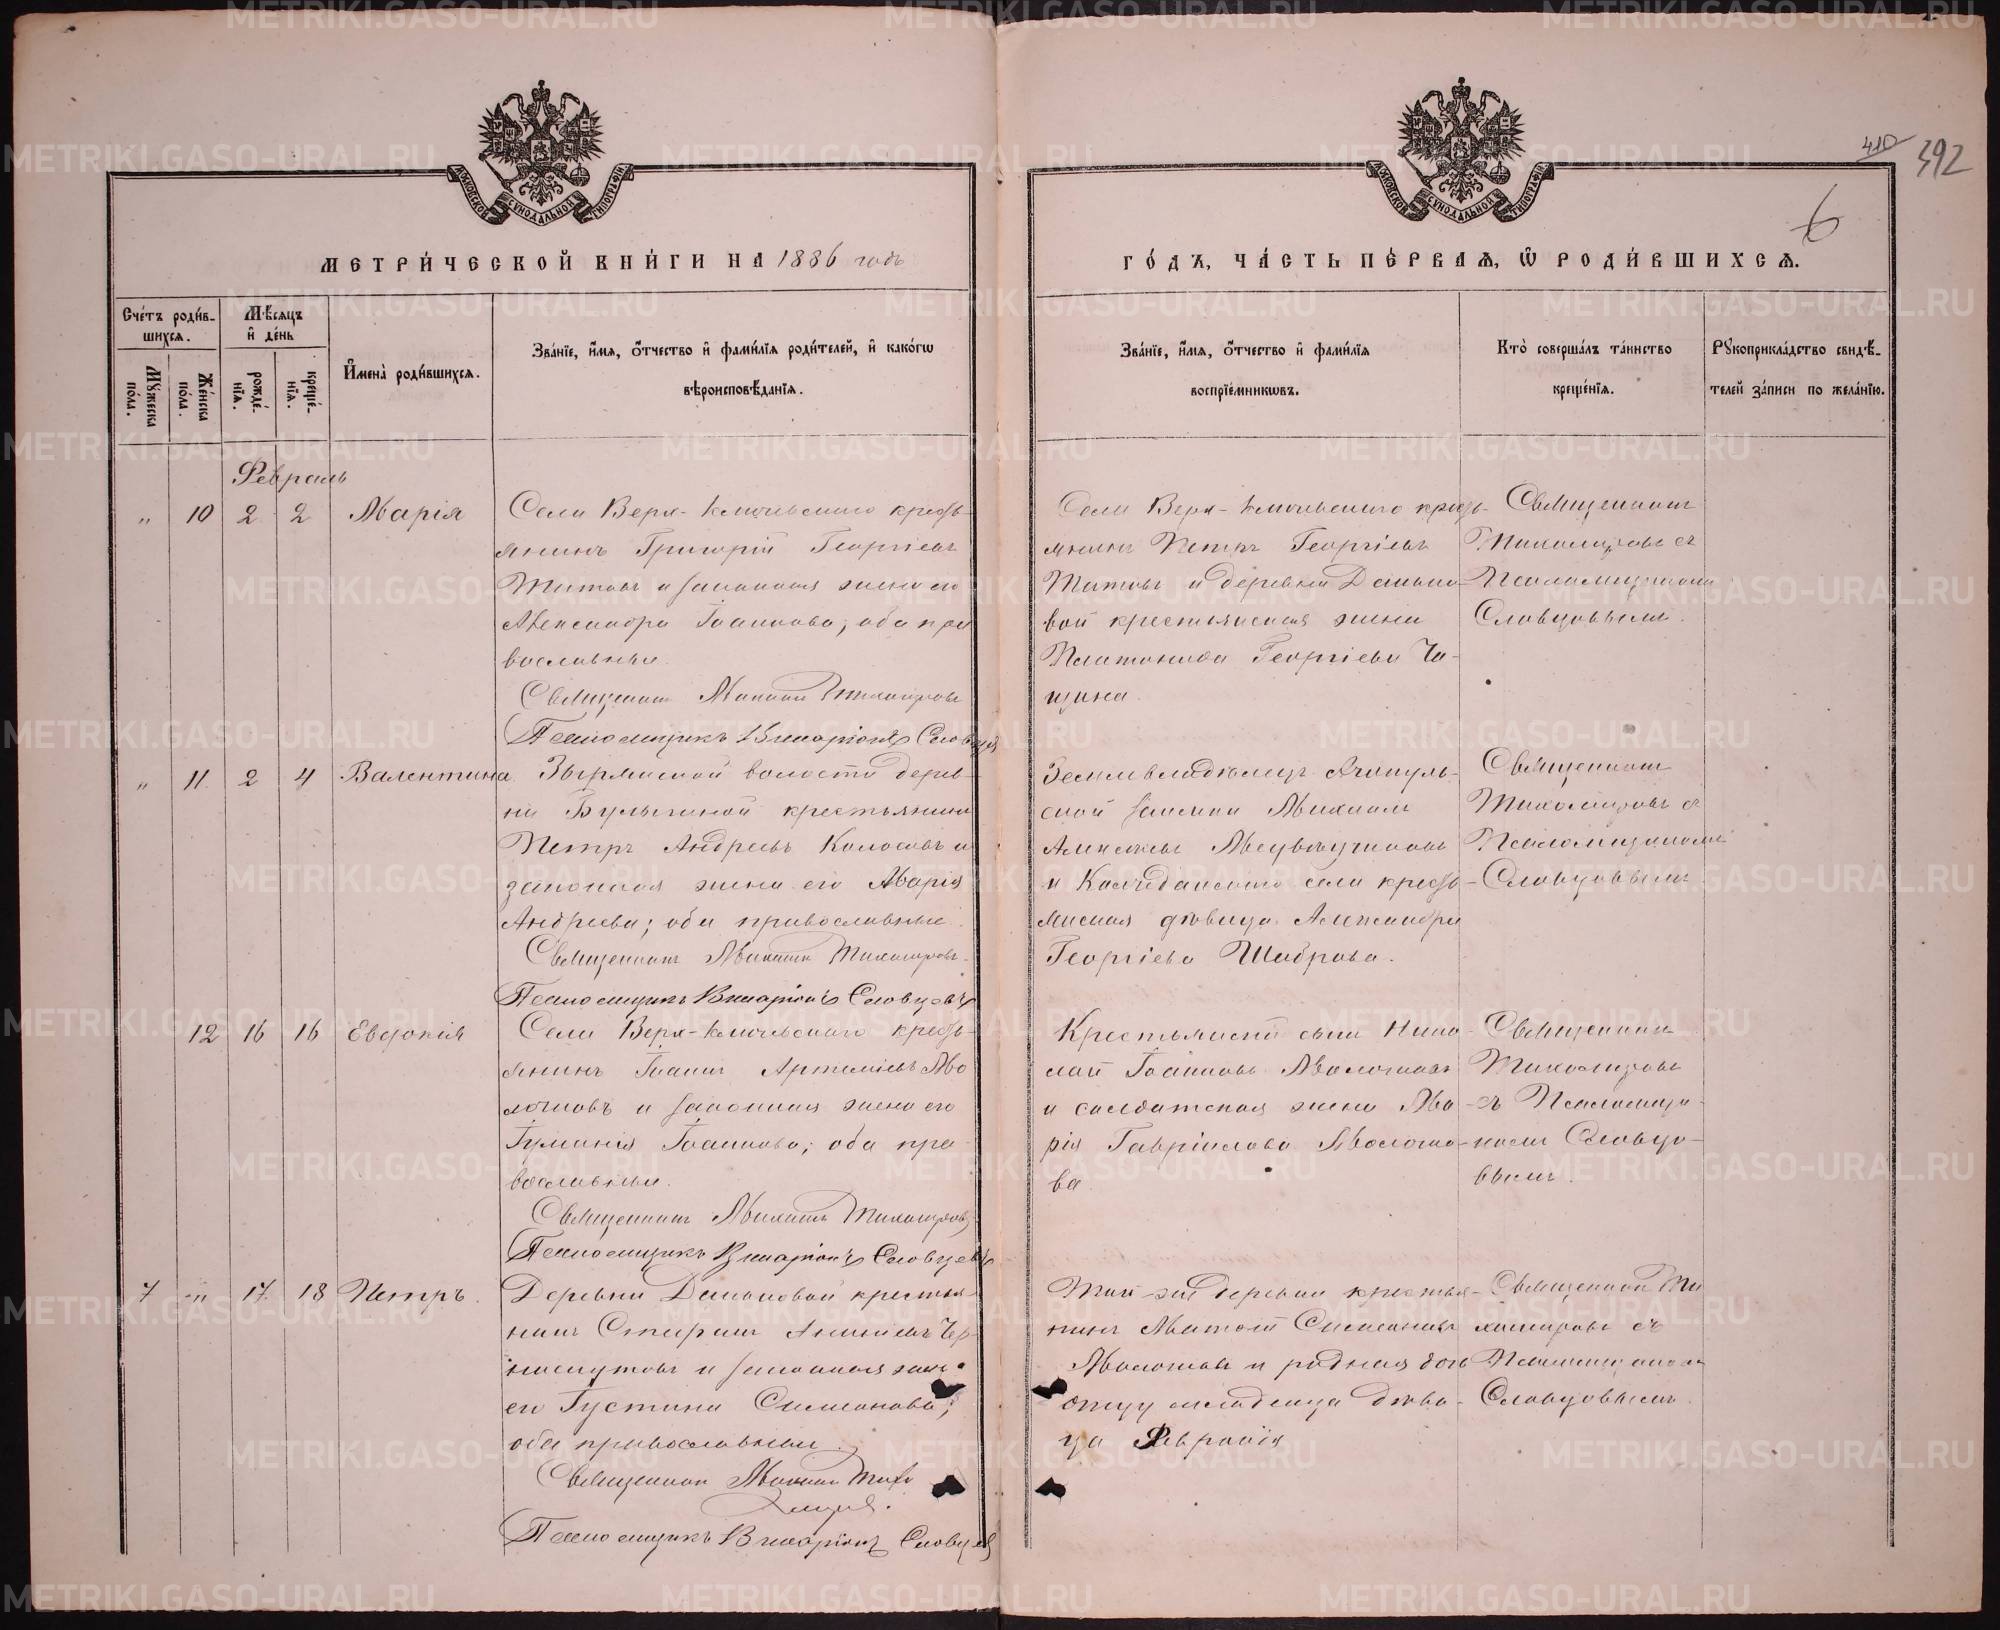 410
392
6
МОСКОВСКОЙ СѴНОДАЛЬНОЙ ТИПОГРАФІИ
МЕТРИ́ЧЕСКОЙ КНИ́ГИ НА 1886 годъ
Сче́тъ роди́вшихся.
Мѣ́сяцъ и҆ де́нь
Мꙋ́жеска по́ла.
Же́нска по́ла.
рожде́нїя.
креще́нїя.
И҆мена̀ роди́вшихся.
Зва́нїе, и҆́мя, ѻ҆́тчество и҆ фами́лїя роди́телей, и҆ како́гѡ
вѣроисповѣ́данїя.
Февраль
„ 10 2 2 Марія
Села Верх-Ключевского кресть-
янинъ Григорій Георгіевъ
Титовъ и законная жена его
Александра Іоаннова; оба пра
вославные.
Священникъ Михаилъ Тихомировъ
Псаломщикъ Иларіонъ Словцовъ
„ 11 2 4 Валентина
Зырянской волости дерев-
ни Булыгиной крестьянинъ
Петръ Андреевъ Колосовъ и
законная жена его Марія
Андреева; оба православные.
Священникъ Михаилъ Тихомировъ.
Псаломщикъ Иларіонъ Словцовъ
12 16 16 Евдокія
Села Верх-Ключевского кресть-
янинъ Іоаннъ Артемьевъ Мо
лочковъ и законная жена его
Іуліанія Іоаннова; оба пра
вославные.
Священникъ Михаилъ Тихомировъ
Псаломщикъ Иларіонъ Словцовъ
7 „ 17 18 Петръ.
Деревни Даньковой крестья-
нинъ
и законная жена
его Іустина Симеонова;
оба православные.
Священникъ Михаилъ Тихо
мировъ.
Псаломщикъ Иларіонъ Словцовъ
ГО́ДЪ, ЧА́СТЬ ПЕ́РВАЯ, Ѡ҆ РОДИ́ВШИХСЯ.
Зва́нїе, и҆́мя, ѻ҆́тчество и҆ фами́лїя
воспрїе́мникѡвъ.
Кто̀ соверша́лъ та́инство
креще́нїя.
Рꙋкоприкла́дство свидѣ́-
телей за́писи по жела́нїю.
Села Верх-Ключевского кресть-
янинъ Петръ Георгіевъ
Титовъ и деревни Данько
вой крестьянская жена
Платонида Георгіева Ча-
щина.
Священникъ
Тихомировъ съ
Псаломщикомъ
Словцовымъ.
Землевладѣлецъ
Михаилъ
Алексѣевъ
и Колчеданского села кресть-
янская дѣвица Александра
Георгіева Шаврова.
Священникъ
Тихомировъ съ
Псаломщикомъ
Словцовымъ
Крестьянскій сынъ Нико
лай Іоанновъ Молочковъ
и солдатская жена Ма
рія Гавріилова Молочко-
ва.
Священникъ
Тихомировъ
съ Псаломщи-
комъ Словцо-
вымъ.
Той-же деревни крестья-
нинъ
и родная дочь
отцу младенца дѣви-
ца
Священникъ Ти
хомировъ съ
Псаломщикомъ
Словцовымъ.
METRIKI.GASO-URAL.RU